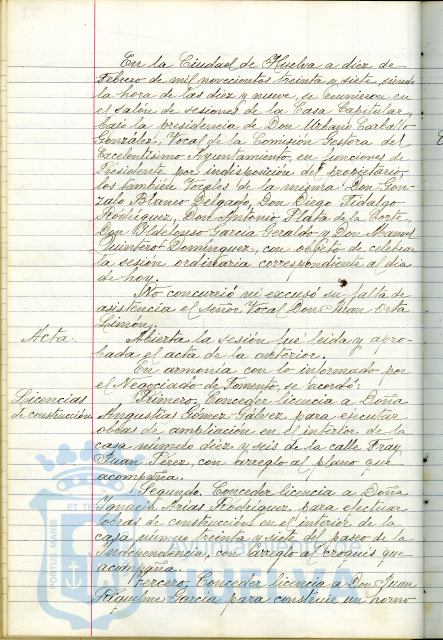 En la Ciudad de Huelva a diez de
Febrero de mil novecientos treinta y siete, siendo
la hora de las diez y nueve, se reunieron en
el salón de sesiones de la Casa Capitular,
bajo la presidencia de Don Urbano Carballo
González, Vocal de la Comisión Gestora del
Excelentísimo Ayuntamiento, en funciones de
Presidente por indisposición del propietario,
los también Vocales de la misma Don Gon-
zalo Blanco Delgado, Don Diego Fidalgo
Rodríguez, Don Antonio Plata de la Corte,
Don Ildefonso García Geraldo y Don Manuel
Quintero Domínguez, con objeto de celebrar
la sesión ordinaria correspondiente al día
de hoy.
No concurrió ni excusó su falta de
asistencia el señor Vocal Don Juan Orta
Limón.
Acta. Abierta la sesión fué leida y apro-
bada el acta de la anterior.
En armonia con lo informado por
el Negociado de Fomento, se acordó:
Licencias Primero. Conceder licencia a Doña
de construcción Angustias Gómez Gálvez para ejecutar
obras de ampliación en el interior de la
casa número diez y seis de la calle Fray
Juan Pérez, con arreglo al plano que
acompaña.
Segundo. Conceder licencia a Doña
Ignacia Arias Rodriguez, para efectuar
obras de construcción en el interior de la
casa número treinta y siete del paseo de la
Independencia, con arreglo al croquis que
acompaña.
Tercero. Conceder licencia a Don Juan
Riquelme García para construir un horno
PORTUS MARIS ET TE